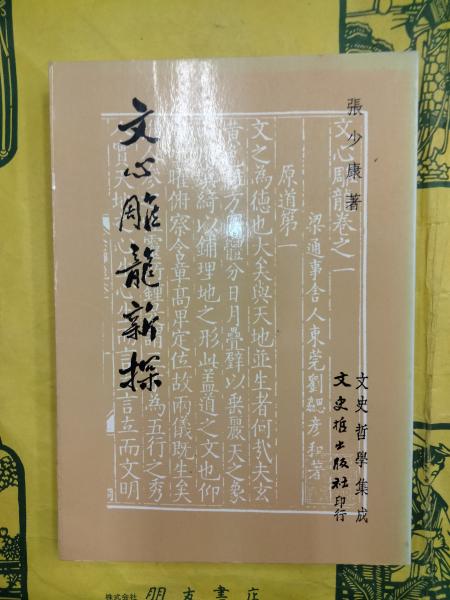 張少康著
文心雕龍新探
文史哲學集成
文史哲出版社印行
文心雕龍卷之一
梁通事舍人東莞劉勰彥和著
原道第一
文之為德也大矣與天地並生者何哉夫玄
黃色雜方圓體分日月疊璧以垂麗天之象
綺以鋪理地之形此蓋道之文也仰
曜俯察含章高卑定位故兩儀既生矣
為五行之秀
言立而文明
株式会社 朋友書店